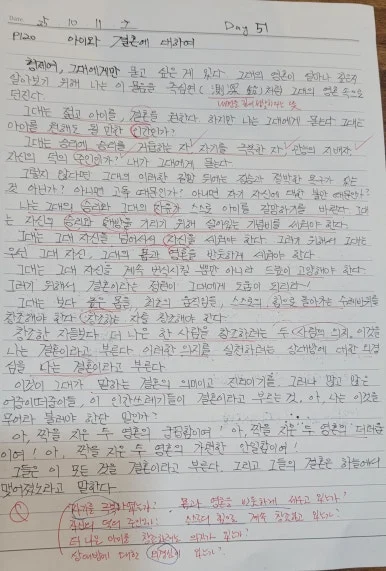 Date. 25 10 11 Day 51
P120 아이와 결혼에 대하여
형제여, 그대에게만 묻고 싶은 게 있다. 그대의 영혼이 얼마나 깊은지
알아보기 위해 나는 이 물음을 측심연( )처럼 그대의 영혼 속으로
던진다.
그대는 젊고 아이를, 결혼을 원한다. 하지만 나는 그대에게 묻는다. 그대는
아이를 원해도 될 만한 인간인가?
그대는 승리에 승리를 거듭하는 자, 자기를 극복한 자, 관능의 지배자,
자신의 덕의 주인인가? 내가 그대에게 묻는다.
그렇지 않다면 그대의 이러한 갈망 뒤에는 짐승과 절박한 욕구가 있는
것 아닌가? 아니면 고독 때문인가? 아니면 자기 자신에 대한 불만 때문인가?
나는 그대의 승리와 그대의 자유가 스스로 아이를 갈망하기를 바란다. 그대
는 자신의 승리와 해방을 기리기 위해 살아있는 기념비를 세워야 한다.
그대는 그대 자신을 넘어서서 자신을 세워야 한다. 그러기 위해서 그대는
우선 그대 자신, 그대의 몸과 영혼을 반듯하게 세워야 한다
그대는 그대 자신을 계속 번식시킬 뿐만 아니라 드높이 고양해야 한다.
그러기 위해서 결혼이라는 정원이 그대에게 도움이 되리라!
그대는 보다 높은 몸을, 최초의 움직임을, 스스로의 힘으로 돌아가는 수레바퀴를
창조해야 한다. 창조하는 자를 창조해야 한다.
창조한 자들보다 더 나은 한 사람을 창조하려는 두 사람의 의지, 이것을
나는 결혼이라고 부른다. 이러한 의지를 실천하려는 상대방에 대한 외경
심을 나는 결혼이라고 부른다.
이것이 그대가 말하는 결혼의 의미이고 진리이기를. 그러나 많고 많은
어중이떠중이들, 이 인간쓰레기들이 결혼이라고 부르는 것, 아, 나는 이것을
무어라 불러야 한단 말인가?
아, 짝을 지은 두 영혼의 궁핍함이여! 아, 짝을 지은 두 영혼의 더러움
이여! 아, 짝을 지은 두 영혼의 가련한 안일함이여!
그들은 이 모든 것을 결혼이라고 부른다. 그리고 그들의 결혼은 하늘에서
맺어졌노라고 말한다.
Q 자기를 극복하였는가? 몸과 영혼을 반듯하게 세우고 있는가?
자신의 덕의 주인인가? 스스로의 힘으로 계속 창조하고 있는가?
더 나은 아이를 창조하려는 의지가 있는가?
상대방에 대한 외경심이 있는가?